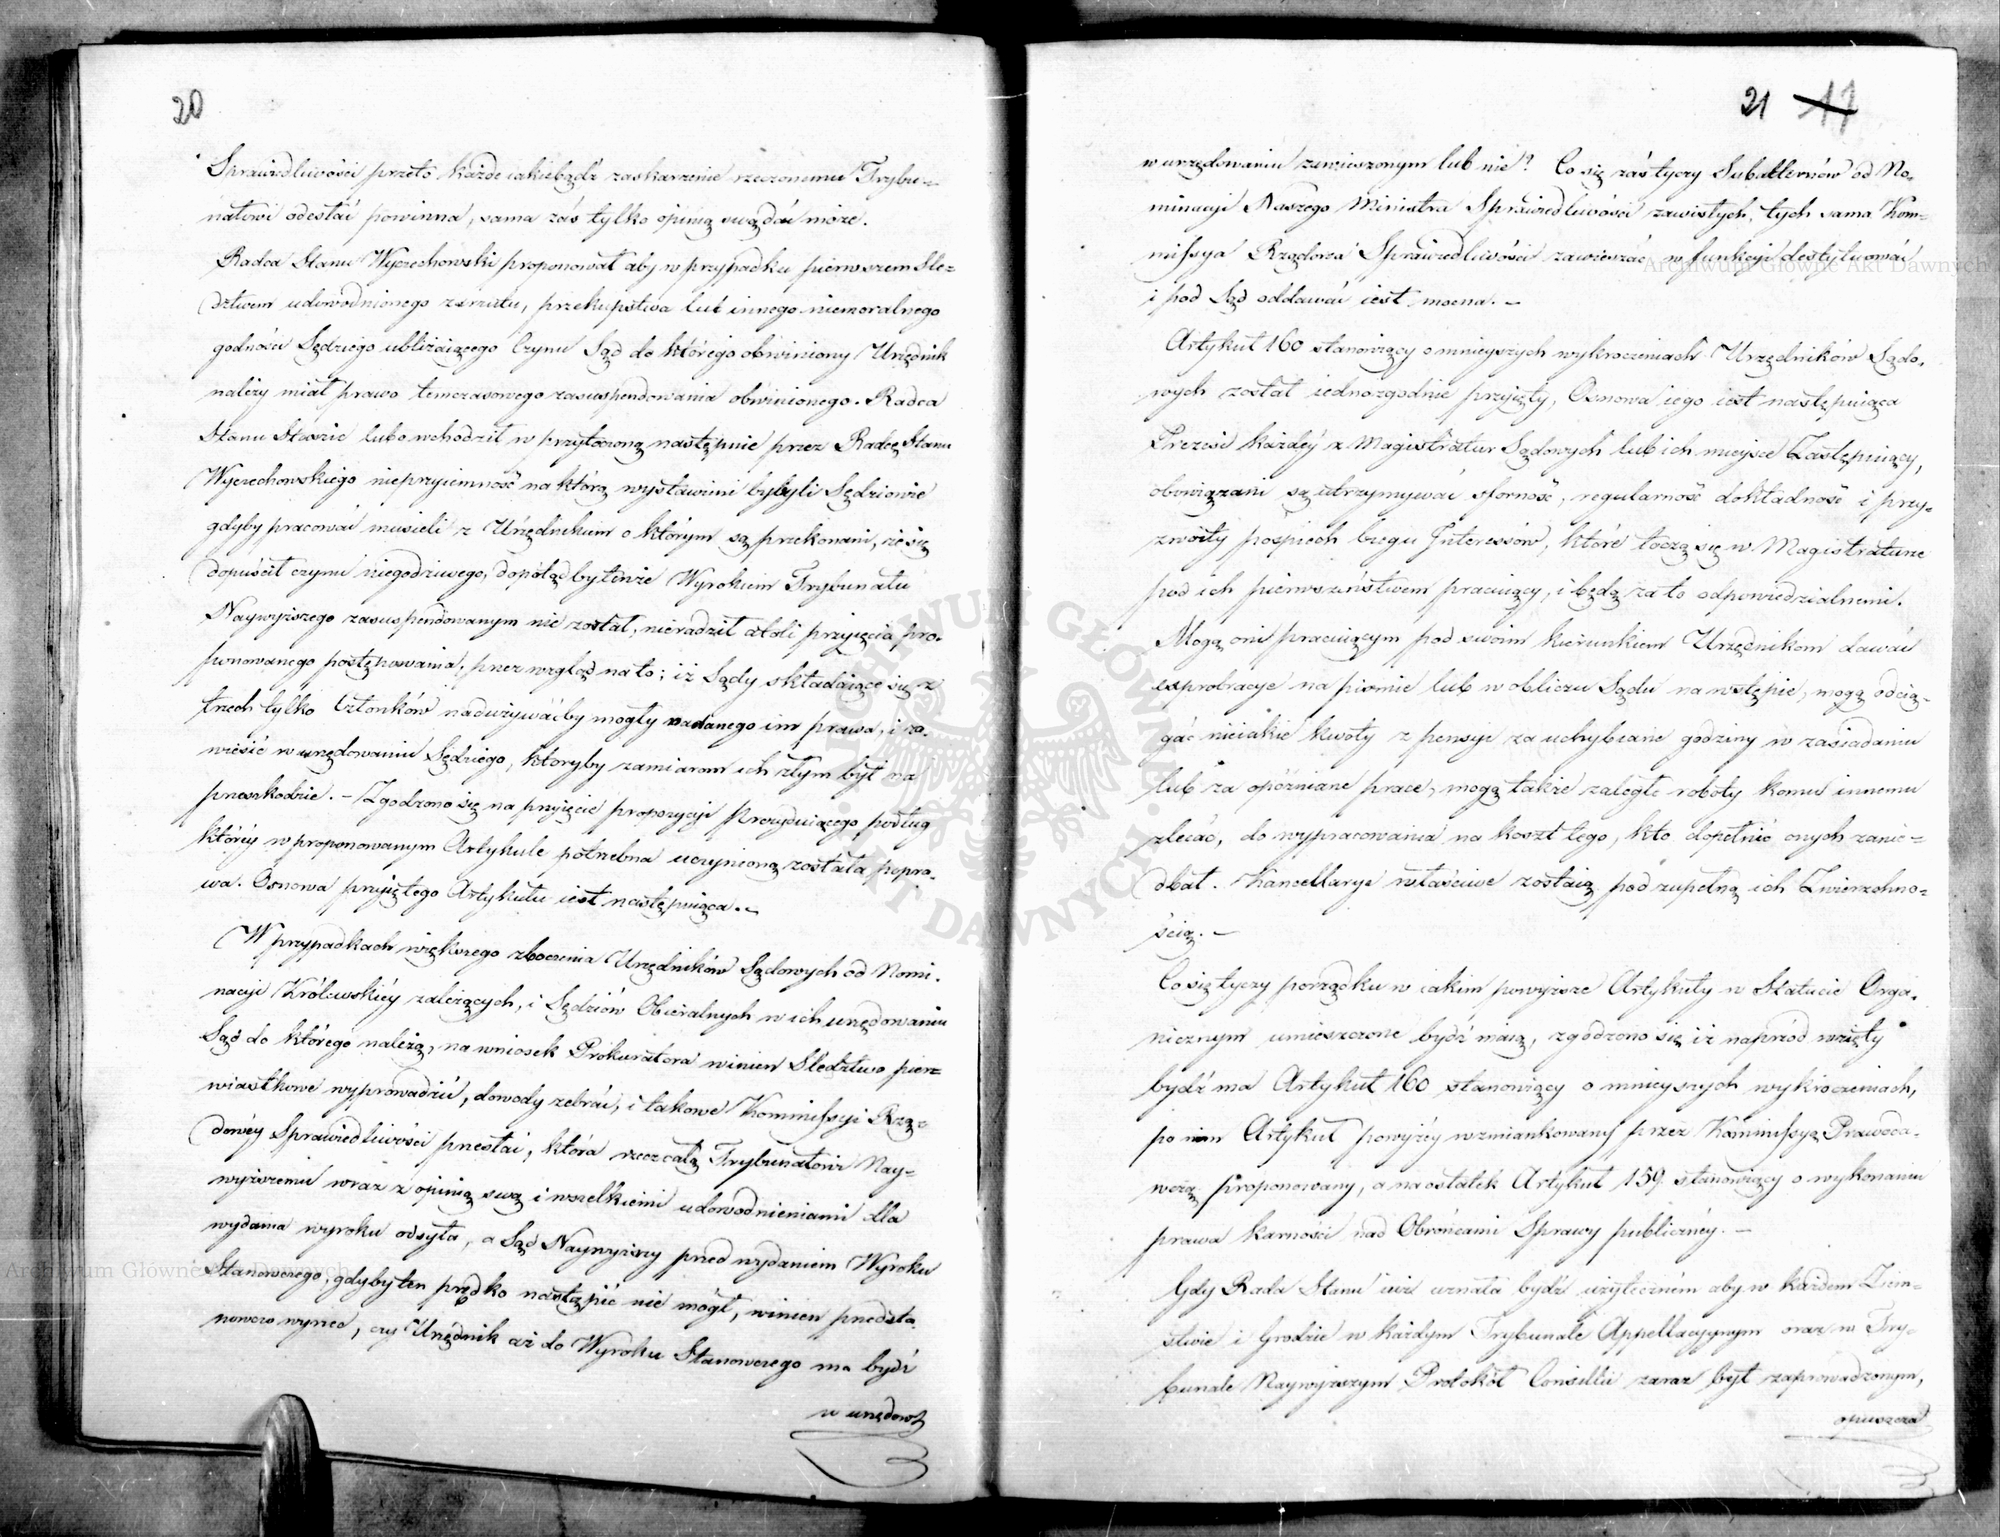 20
Sprawiedliwości przeto każde iakiebądź zaskarżenie rzeczonemu Trybu=
nałowi odesłać powinna, sama zaś tylko opinię swą dać może.
Radca Stanu Wyczechowski proponował aby w przypadku pierwszem Sle=
dztwem udowodnionego zarzutu, przekupstwa lub innego niemoralnego
godności Sędziego ubliżaiącego Czynu Sąd do którego obwiniony Urzędnik
należy miał prawo temczasowego zasuspendowania obwinionego. Radca
Stanu Staszic lubo wchodził w przytoczoną następnie przez Radcę Stanu
Wyczechowskiego nieprzyiemność na którą wystawieni byliby Sędziowie
gdyby pracować musieli z Urzędnikiem o którym są przekonani, że się
dopuścił czynu niegodziwego, dopokąd by tenże Wyrokiem Trybunału
Naywyższego zasuspendowanym nie został, nieradził atoli przyięcia pro=
ponowanego postępowania, przez wzgląd na to; iż Sądy składaiące się z
trzech tylko Członków nadużywać by mogły nadanego im prawa, i za=
wiesić w urzędowaniu Sędziego, któryby zamiarom ich złym był na
przeszkodzie. – Zgodzono się na przyięcie propozycji Prezyduiącego podług
któréy w proponowanym Artykule potrzebna uczynioną została popra=
wa. Osnowa przyiętego Artykułu iest następuiąca. –
W przypadkach większego zboczenia Urzędników Sądowych od Nomi=
nacyi Królewskiéy zależących, i Sędziów Obieralnych w ich urzędowaniu
Sąd do którego należą, na wniosek Prokuratora winien Sledztwo pier=
wiastkowe wyprowadzić, dowody zebrać, i takowe Kommissyi Rzą=
dowéy Sprawiedliwości przesłać, która rzecz całą Trybunałowi Nay=
wyższemu wraz z opinią swą i wszelkiemi udowodnieniami dla
wydania wyroku odsyła, a Sąd Naywyższy przed wydaniem Wyroku
Stanowczego, gdyby ten prędko nastąpić nie mógł, winien przedsta
nowczo wyrzec, czy Urzędnik aż do Wyroku Stanowczego ma bydź
w urzędow
21 17
w urzędowaniu zawieszonym lub nie? Co się zaś tyczy Subalternów od No=
minacyi Naszego Ministra Sprawiedliwości zawisłych, tych sama Kom=
missya Rządowa Sprawiedliwości zawieszać w funkcji destytuować
i pod Sąd oddawać iest mocna. –
Artykuł 160 stanowiący o mnieyszych wykroczeniach Urzędników Sądo=
wych został iednozgodnie przyięty, Osnowa iego iest następuiąca
Prezesi każdéy z Magistratur Sądowych lub ich mieysce Zastępuiący,
obowiązani są utrzymywać sforność, regularność dokładność i przy=
zwoity pospiech biegu Interessów, które toczą się w Magistraturze
pod ich pierwszeństwem pracuiący, i będą za to odpowiedzialnemi.
Mogą oni pracuiącym pod swoim kierunkiem Urzędnikom dawać
exprobracye na piśmie lub w obliczu Sądu na wstępie, mogą odcią=
gać nieiakie kwoty z pensyi za uchybiane godziny w zasiadaniu
lub za opóźniane prace, mogą także zaległe roboty komu innemu
zlecać, do wypracowania na koszt tego, kto dopełnić onych zanie=
dbał. Kancellarye właściwe zostaią pod zupełną ich Zwierzchno=
ścią. –
Co się tyczy porządku w iakim powyższe Artykuły w Statucie Orga=
nicznym umieszczone bydź maią, zgodzono się iż naprzód wzięty
bydź ma Artykuł 160 stanowiący o mnieyszych wykroczeniach,
po nim Artykuł powyżéy wzmiankowany przez Kommissyą Prawoda=
wczą proponowany, a na ostatek Artykuł 159 stanowiący o wykonaniu
prawa karności nad Obrońcami Sprawy publicznéy. –
Gdy Rada Stanu iuż uznała bydź użyteczném aby w każdem Ziem=
stwie i Grodzie w każdym Trybunale Appellacyjnym oraz w Try=
bunale Naywyższym Protokół Consillii zaraz był zaprowadzonym,
opuszcza
ARCHIWUM GŁÓWNE AKT DAWNYCH
Archiwum Główne Akt Dawnych
Archiwum Główne Akt Dawnych